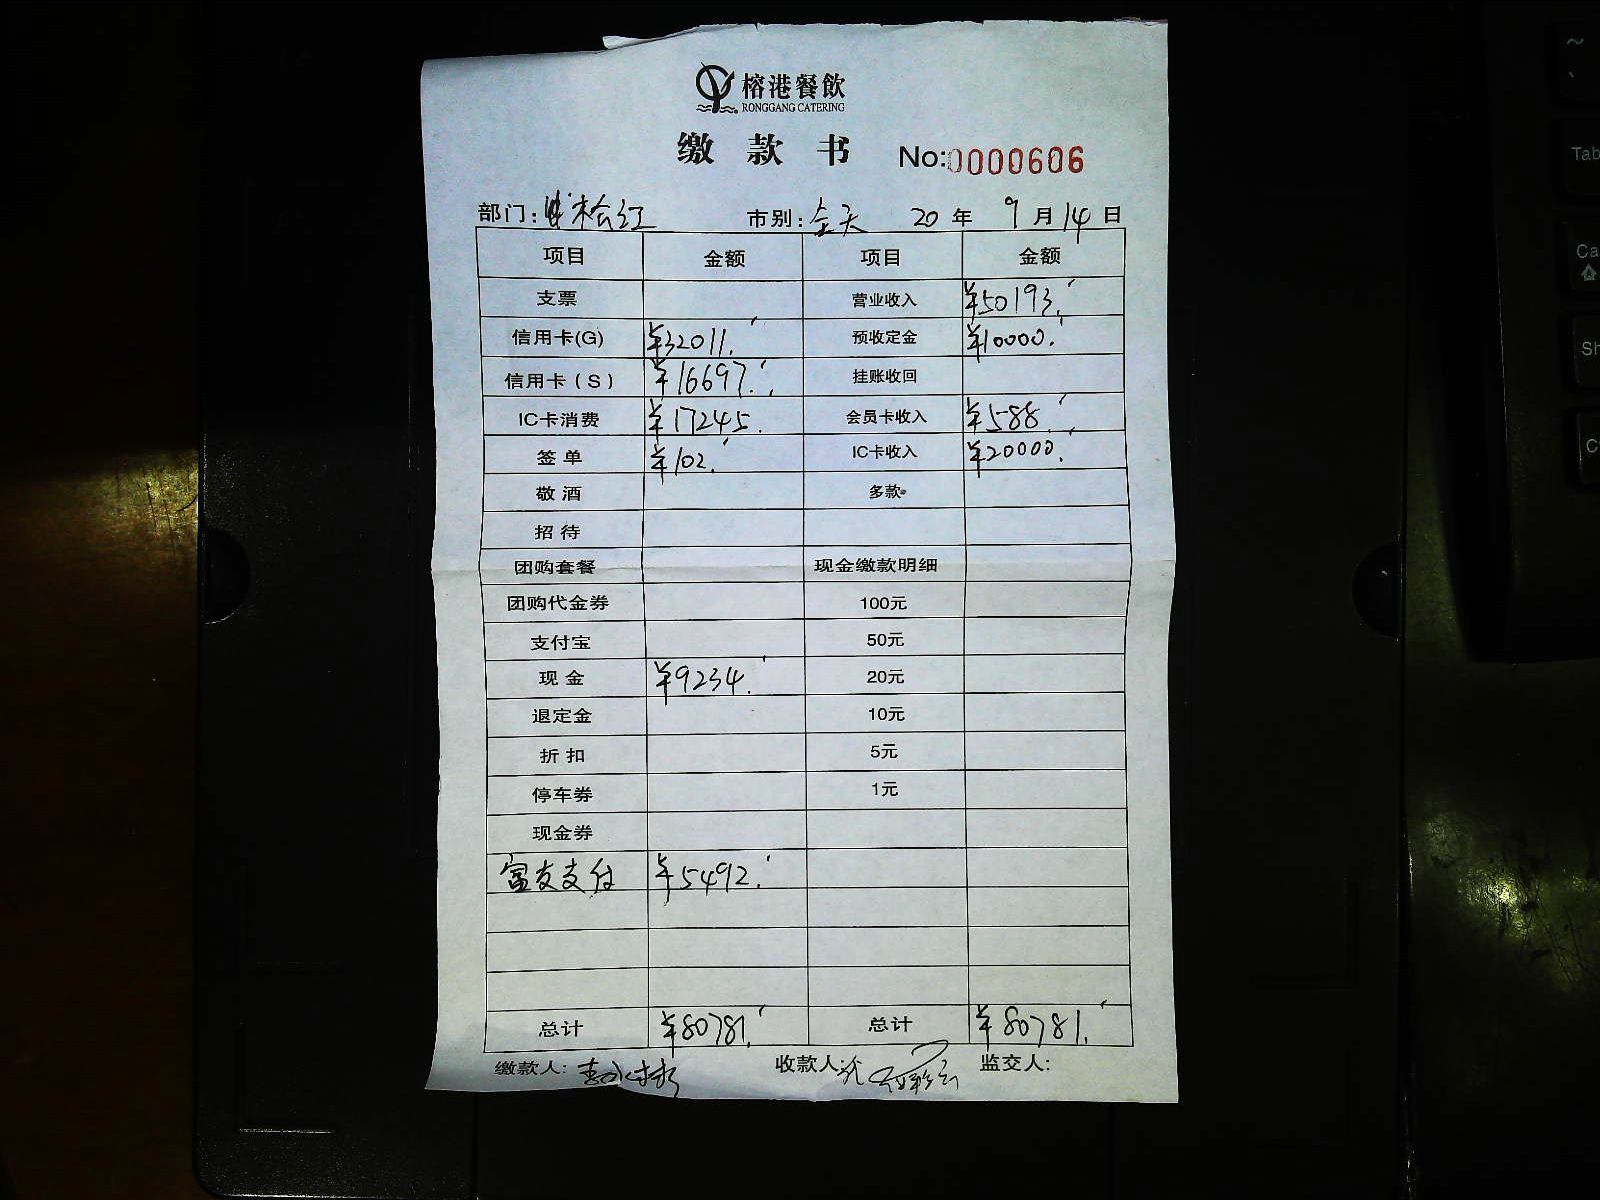 榕港餐飲
RONGGANG CATERING
缴款书 No:0000606
部门: 松江 市别: 全天 20年 9月14日
项目 金额 项目 金额
支票 营业收入 ¥50193.
信用卡(G) ¥32011. 预收定金 ¥10000.
信用卡(S) ¥16697. 挂账收回
IC卡消费 ¥17245. 会员卡收入 ¥588
签单 ¥102. IC卡收入 ¥20000.
敬酒 多款
招待
团购套餐 现金缴款明细
团购代金券 100元
支付宝 50元
现金 ¥9234. 20元
退定金 10元
折扣 5元
停车券 1元
现金券
富友支付 ¥5492.
总计 ¥80781. 总计 ¥80781.
缴款人: 收款人: 监交人: